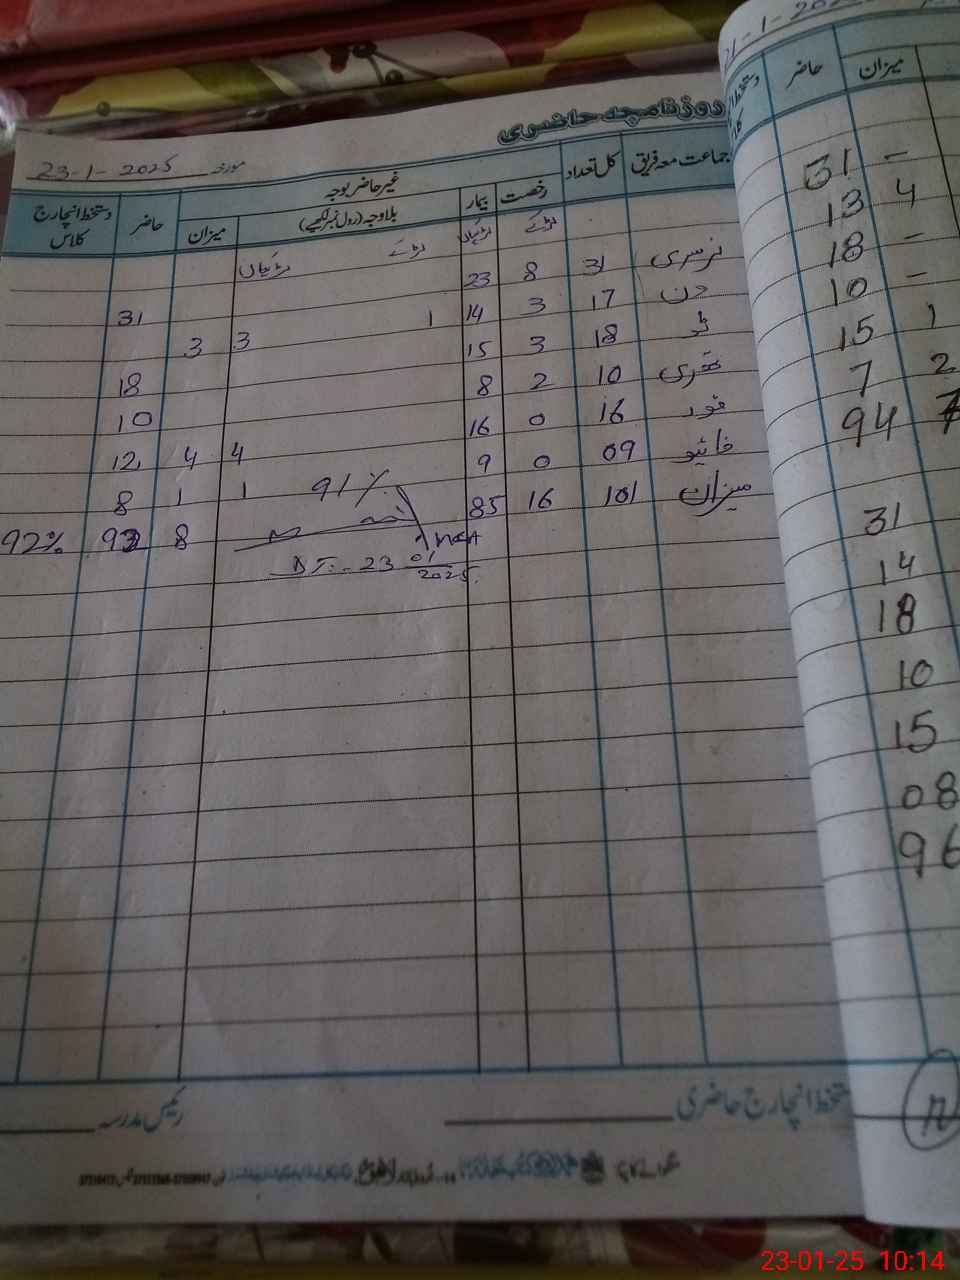 روزنامچہ حاضری
مورخہ 23-1-2025
جماعت معہ فریق کل تعداد رخصت بیمار غیر حاضر بوجہ حاضر دستخط انچارج کلاس
بلاوجہ (رول نمبر لکھیے) میزان
لڑکے لڑکیاں لڑکے لڑکیاں
نرسری 31 8 23 31
ون 17 3 14 1 3 3
ٹو 18 3 15 18
تھری 10 2 8 10
فور 16 0 16 4 4 12
فائیو 09 0 9 1 1 8
میزان 101 16 85 8 93 92%
91%
MEA
DT:- 23 01 2025
دستخط انچارج حاضری
رئیس مدرسہ
میزان حاضر
31 -
13 4
18 -
10 -
15 1
7 2
94 7
31
14
18
10
15
08
96
23-01-25 10:14